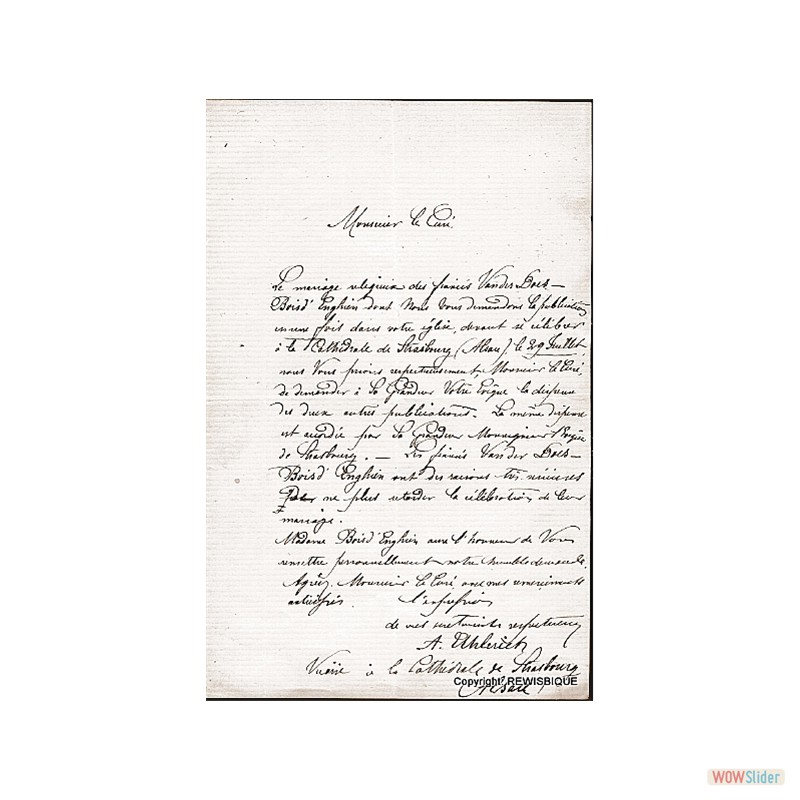 Monsieur le Curé,
Le mariage religieux des fiancés Van der Does –
Boisd'Enghien dont nous vous demandons la publication
une fois dans votre église, devant se célébrer
à la Cathédrale de Strasbourg (Alsace), le 29 Juillet
nous Vous prions respectueusement, Monsieur le Curé,
de demander à Sa Grandeur Votre Evêque la dispense
des deux autres publications. La même dispense
est accordée par Sa Grandeur Monseigneur l'Evêque
de Strasbourg. – Les fiancés Van der Does –
Boisd'Enghien ont des raisons très
ne plus retarder la célébration de leur
mariage.
Madame Boisd'Enghien aura l'honneur de Vous
remettre personnellement notre humble demande.
Agréez, Monsieur le Curé, avec mes remerciements
anticipés, l'expression
de mes sentiments
A.
Vicaire à la Cathédrale de Strasbourg
Alsace
Copyright REWISBIQUE
WOWSlider